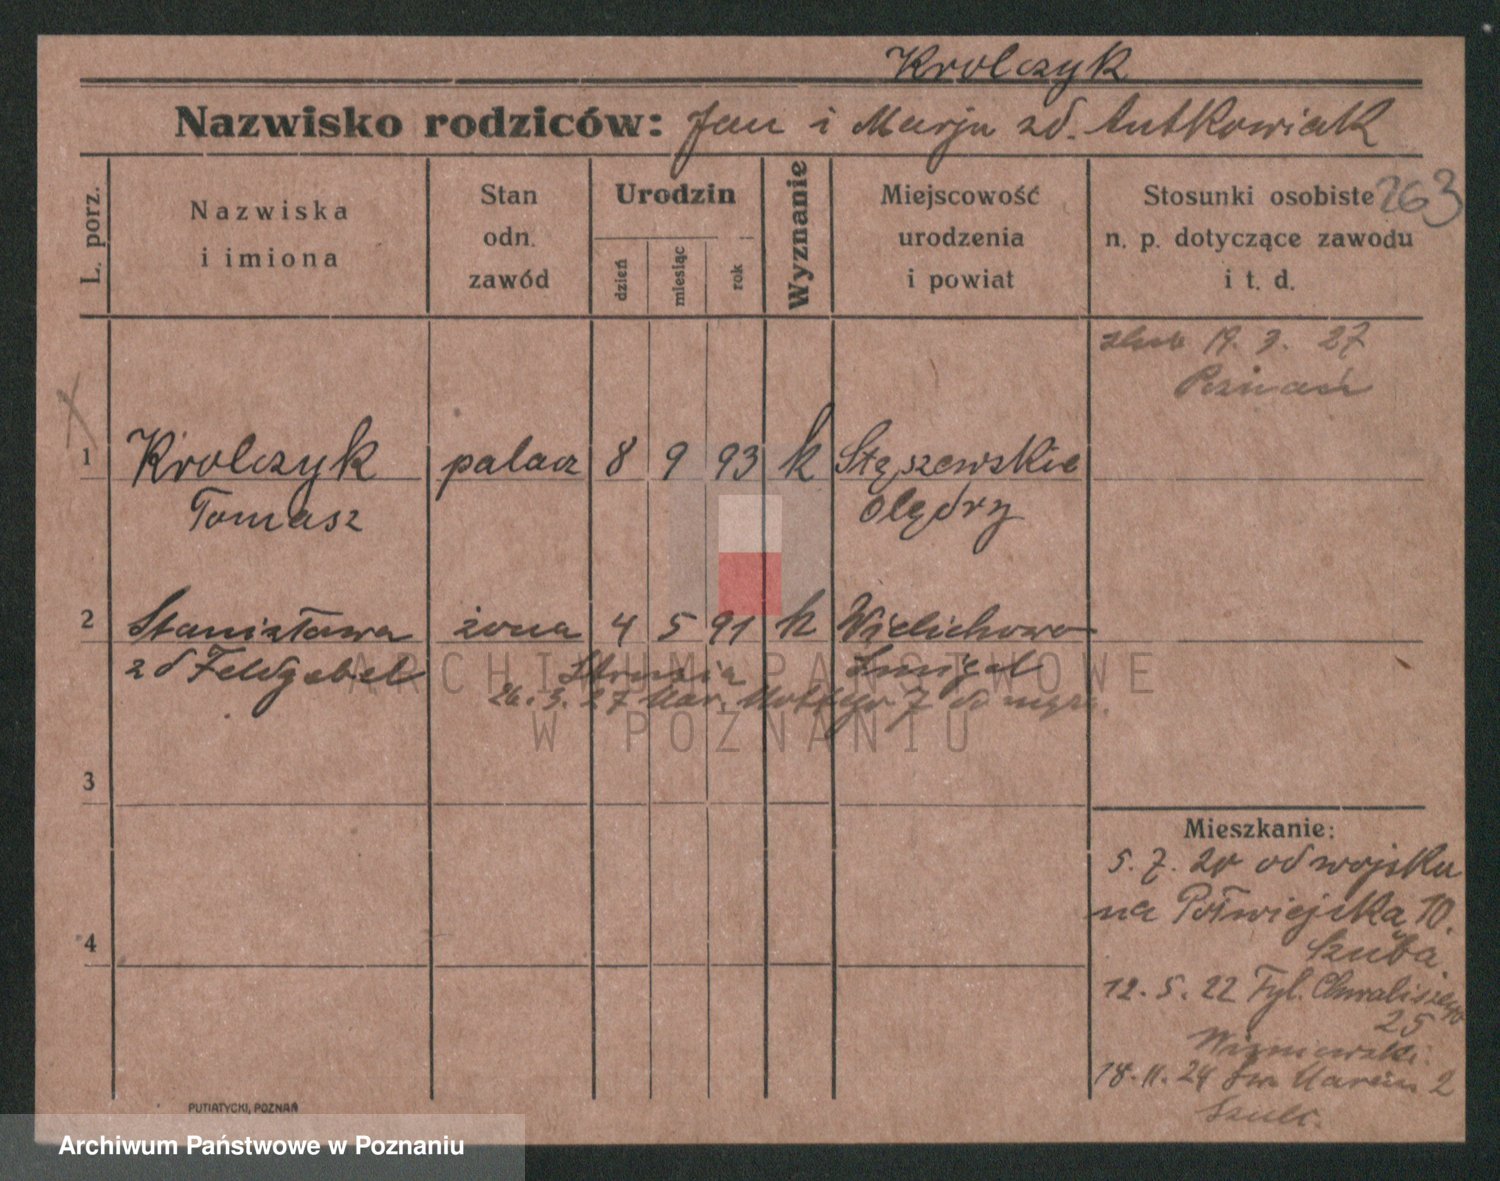 Krolczyk
Nazwisko rodziców: Jan i Marja zd. Antkowiak
L. porz.
Nazwiska
i imiona
Stan
odn.
zawód
Urodzin
dzień
miesiąc
rok
Wyznanie
Miejscowość
urodzenia
i powiat
Stosunki osobiste
n. p. dotyczące zawodu
i t. d.
263
ślub 19. 3. 27
Poznań
1 Krolczyk palacz 8 9 93 k Stęszewskie
Tomasz Olędry
2 Stanisława żona 4 5 91 k Wielichowo
zd Feldgebel Śmigel
26. 3. 27 7
ARCHIWUM PAŃSTWOWE
W POZNANIU
3
4
Mieszkanie:
5. 7. 20 od wojska
na Półwiejska 10.
Szuba
12. 5. 22 Tyl. Chwaliszewo
25
Wiśniewski.
18. 11. 24 Św. Marcin 2
Szulc.
PUTIATYCKI, POZNAŃ
Archiwum Państwowe w Poznaniu